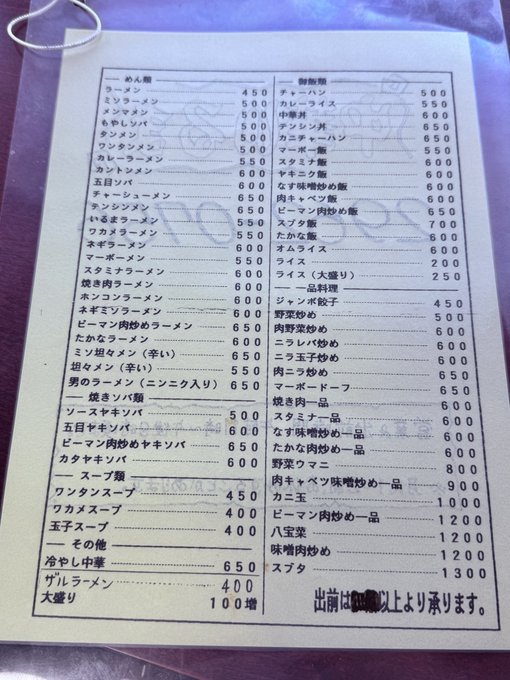 めん類
ラーメン 450
ミソラーメン 500
メンマメン 500
もやしソバ 500
タンメン 500
ワンタンメン 500
カレーラーメン 550
カントンメン 600
五目ソバ 600
チャーシューメン 650
テンシンメン 650
いるまラーメン 650
ワカメラーメン 550
ネギラーメン 600
マーボーメン 550
スタミナラーメン 600
焼き肉ラーメン 600
ホンコンラーメン 600
ネギミソラーメン 600
ピーマン肉炒めラーメン 650
たかなラーメン 600
ミソ坦々メン（辛い） 650
坦々メン（辛い） 550
男のラーメン（ニンニク入り） 650
焼きソバ類
ソースヤキソバ 500
五目ヤキソバ 600
ピーマン肉炒めヤキソバ 650
カタヤキソバ 600
スープ類
ワンタンスープ 450
ワカメスープ 400
玉子スープ 400
その他
冷やし中華 650
ザルラーメン 400
大盛り 100増
御飯類
チャーハン 500
カレーライス 550
中華丼 600
テンシン丼 650
カニチャーハン 650
マーボー飯 550
スタミナ飯 600
ヤキニク飯 600
なす味噌炒め飯 600
肉キャベツ飯 600
ピーマン肉炒め飯 650
スブタ飯 700
たかな飯 600
オムライス 600
ライス 200
ライス（大盛り） 250
一品料理
ジャンボ餃子 450
野菜炒め 500
肉野菜炒め 600
ニラレバ炒め 600
ニラ玉子炒め 600
肉ニラ炒め 650
マーボードーフ 650
焼き肉一品 600
スタミナ一品 600
なす味噌炒め一品 600
たかな肉炒め一品 600
野菜ウマニ 800
肉キャベツ味噌炒め一品 900
カニ玉 1000
ピーマン肉炒め一品 1200
八宝菜 1200
味噌肉炒め 1200
スブタ 1300
出前は以上より承ります。